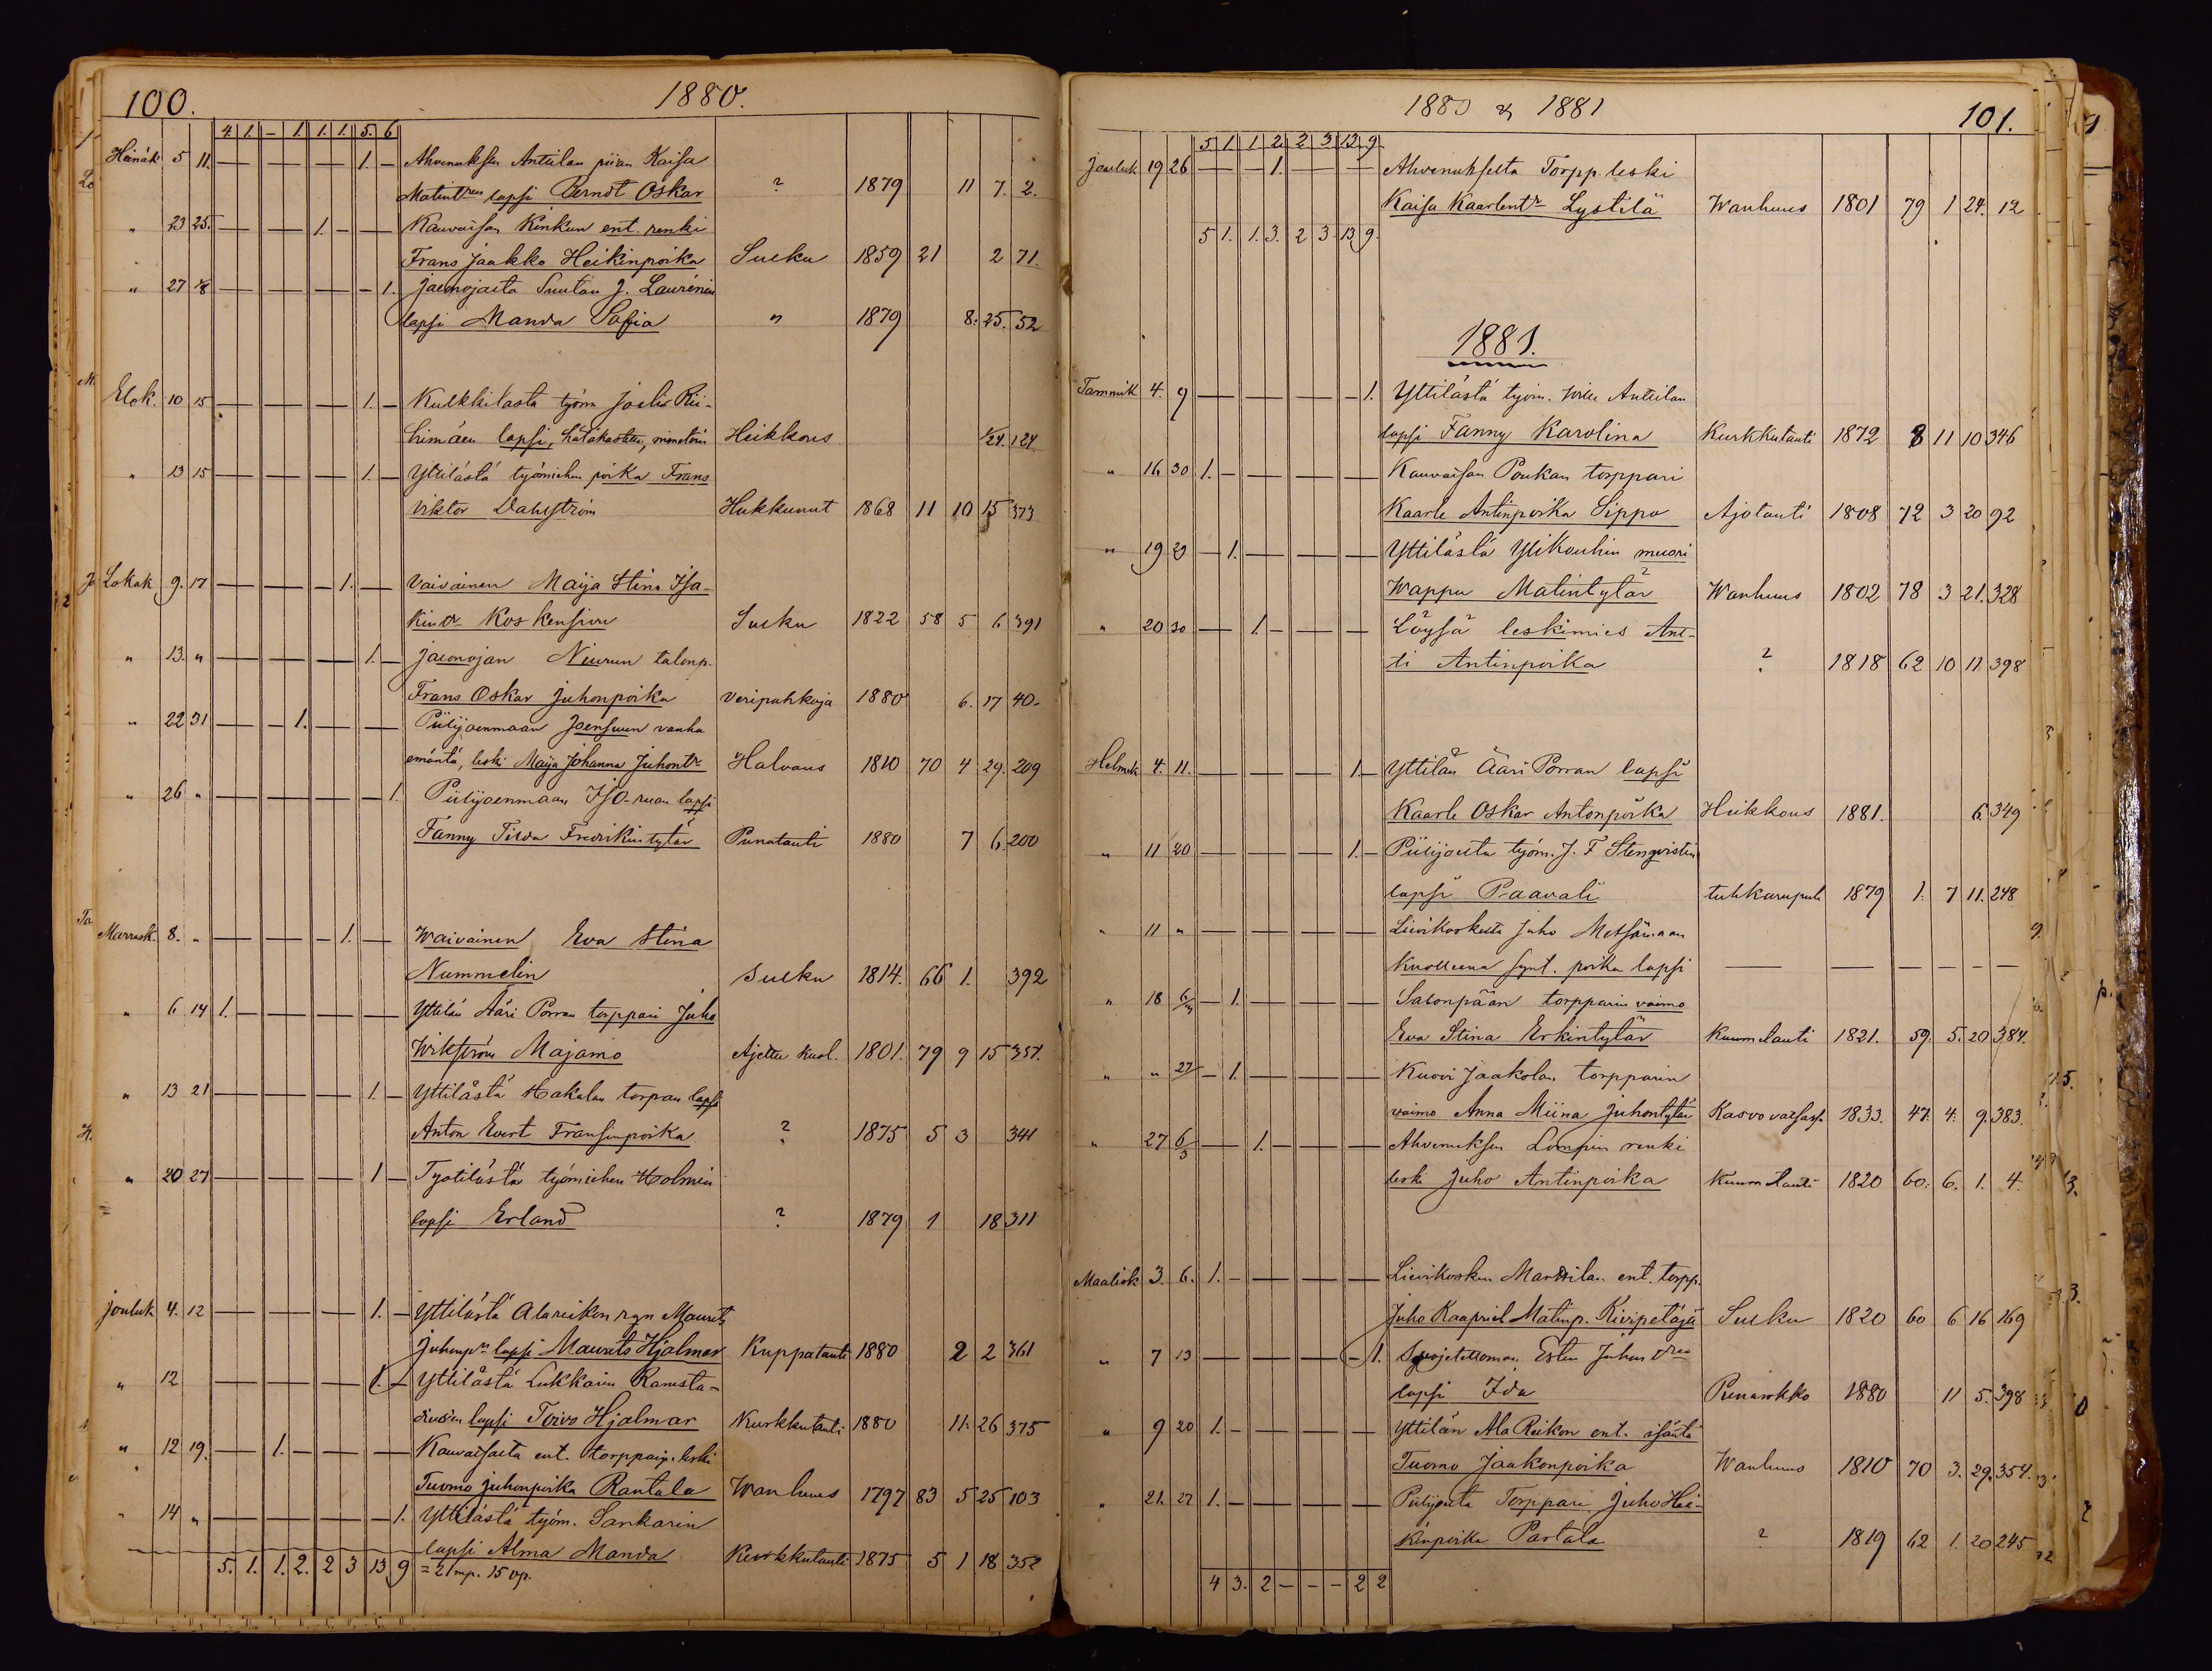 100.
1880.
4 1 - 1. 1. 1. 5. 6
Heinäk 5 11. 1. Ahvenuksen Anttilan piian Kaisa
Matintren lapsi Berndt Oskar ? 1879 11 7. 2.
" 23 25. 1. Kauvaisan Kinkun ent. renki
Frans Jaakko Heikinpoika Sucku 1859 21 2 71.
" 27 1/8 1. Laurénin
lapsi Manda Sofia " 1879 8. 25. 52
Elok. 10 15 1. Kulkkilasta työm Rii-
himäen lapsi, hätäkastettu, nimetöin Heikkous 1/24. 124
" 13 15 1. Yttilästä työmiehen poika Frans
Viktor Dahlström Hukkunut 1868 11 10 15 373
Lokak 9. 17 1. Vaivainen Maija Stina Isa-
kintr Koskensivu Sucku 1822 58 5 6 391
" 13. " 1. Jaconojan Niurun talonp.
Frans Oskar Juhonpoika Veripahkoja 1880 6. 17 40.
" 22 31 1. Piilijoenmaan Joensuun vanha
emäntä, leski Maija Johanna Juhontr Halvaus 1810 70 4 29. 209
" 26 " 1. Piilijoenmaan Iso-ruan lapsi
Fanny Tilda Fredrikintytär Punatauti 1880 7 6. 200
Marrask. 8. " 1. Waivainen Eva Stina
Nummelin Sucku 1814. 66 1. 392
" 6 14 1. Yttilän Ääri Porran torppari Juho
Wikström Majamo Ajettu kuol. 1801. 79 9 15 357.
" 13 21 1. Yttilästä Hakalan torpan lapsi
Anton Evert Fransinpoika ? 1875 5 3 341
" 20 27 1 työmiehen Holmin
lapsi Erland ? 1879 1 18 311
Jouluk 4. 12 1. Yttilästä Alareikon Maurits
Juhonpn lapsi Maurits Hjalmar Kuppatauti 1880 2 2 361
" 12 1. Yttilästä Lukkarin Ramsta-
diusen lapsi Toivo Hjalmar Kurkkutauti 1880 11. 26 375
" 12 19. 1. Kauvaisaeta ent. torpparin leski
Tuomo Juhonpoika Rantala Wanhuus 1797 83 5 25 103
" 14 " 1. Yttilästä työm. Sankarin
lapsi Alma Manda Kurkkutauti 1875 5 1 18 352
5. 1. 1. 2. 2 3 13 9 = 21 mp. 15 vp.
1880 & 1881
101.
5 1 1 2. 2 3 13 9
Jouluk 19 26 1. Ahvenukselta Torpp. leski
Kaisa Kaarlentr Lystilä Wanhuus 1801 79 1 24. 12
5 1. 1. 3. 2 3. 13 9.
1881.
Tammik 4. 9 1. Yttilästä työm. Wille Anttilan
lapsi Fanny Karolina Kurkkutauti 1872 8 11 10 346
" 16 30 1. Kauvaisan Poukan torppari
Kaarle Antinpoika Sippo Ajotauti 1808 72 3 20 92
" 19 23 1. Yttilästä Ylikouhin muori
Wappu Matintytär Wanhuus 1802 78 3 21. 328
" 20 30 1. Löysä leskimies Ant-
ti Antinpoika ? 1818 62 10 11 398
Helmik 4. 11. 1. Yttilän Ääri Porran lapsi
Kaarle Oskar Antonpoika Heikkous 1881. 6. 349
" 11 20 1. Piilijoelta työm. J. F Stenqvistin
lapsi Paavali tuhkarupuli 1879 1. 7 11. 248
" 11 " Liivikoskelta Juho Metsämaan
Kuolleena synt. poika lapsi
" 18 6/3 1. Salonpään torpparin vaimo
Eva Stina Erkintytär Kuumetauti 1821. 59. 5. 20 384.
" " 27 1. Kuovi Jaakolan torpparin
vaimo Anna Miina Juhontytär Kasvo vatsassa 1833. 47. 4. 9. 383.
" 27 6/3 1. Ahvenuksen Lompin renki
leski Juho Antinpoika Kuumetauti 1820 60. 6. 1. 4.
Maalisk 3. 6. 1. Liivikosken Marttilan ent. torpp.
Juho Kaapriel Matinp. Kivipeläjä Sucku 1820 60 6 16 169
" 7 13 1. Suojattoman Ester Juhontren
lapsi Ida Punarokko 1880 11 5. 398
" 9 20 1. Yttilän Ala Reikon ent. isäntä
Tuomo Jaakonpoika Wanhuus 1810 70 3. 29. 354.
" 21. 27 1. Piilijoelta Torppari Juho Hei-
kinpoika Partala ? 1819 62 1. 20 245
4 3. 2 - - - 2 2